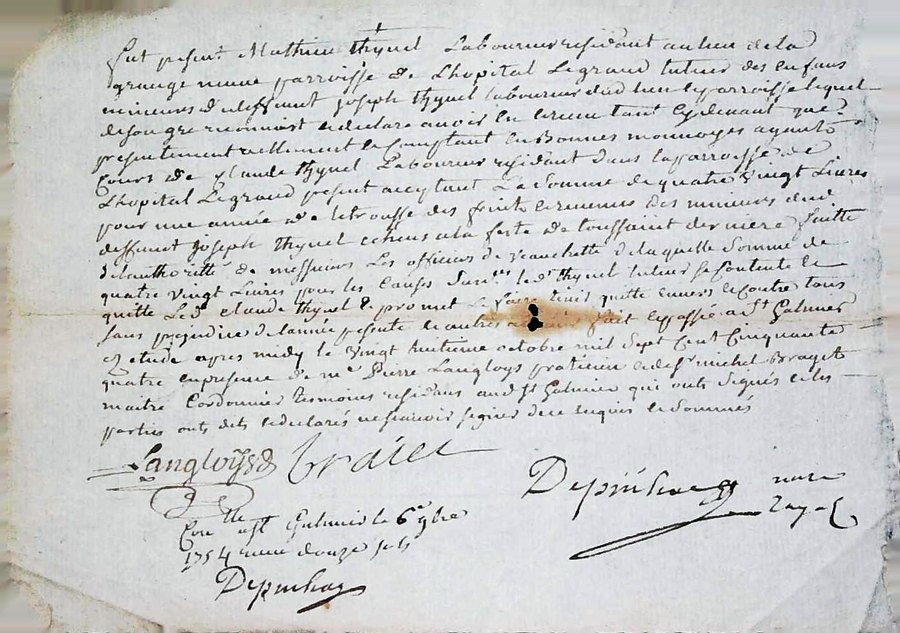 fut present Mathieu thynel Laboureur residant au lieu de la
grange neuve parroisse de Lhopital Legrand tuteur des enfans
mineurs de deffunt Joseph thynel laboureur dud lieu et parroisse lequel
de son gre reconnoist et declare avoir eu et receu tant cydevant que
presentement reellement et comptant en Bonnes monnoyes ayant
Cours de Claude thynel Laboureur residant dans la parroisse de
Lhopital Legrand present acceptant La somme de quatre vingt Livres
pour une année de letrousse des fruits et revenus des mineurs dud
deffunt Joseph thynel echeus a la feste de toussaint derniere faitte
de lauthoritté de messieurs Les officiers de veauchette de laquelle Somme de
quatre vingt Livres pour les Causes Led thynel tuteur se Contente et
quitte Led Claude thynel & promet Le faire tenir quitte envers et Contre tous
sans prejudice de lannée presente et autres fait et passé a St Galmier
ez etude apres midy le vingt huitieme octobre mil Sept Cent Cinquante
quatre en presence de me Pierre Langloys praticien et de sr michel Brayet
maitre Cordonnier temoins residans aud St Galmier qui onts signés et les
parties onts dits et declarés ne scavoir signer de ce enquis et Sommés
Langloys Braiet
Depinhac nore
Royal
Conlle a St Galmier le 6e 9bre
1754 reçu douze sols
Depinhac